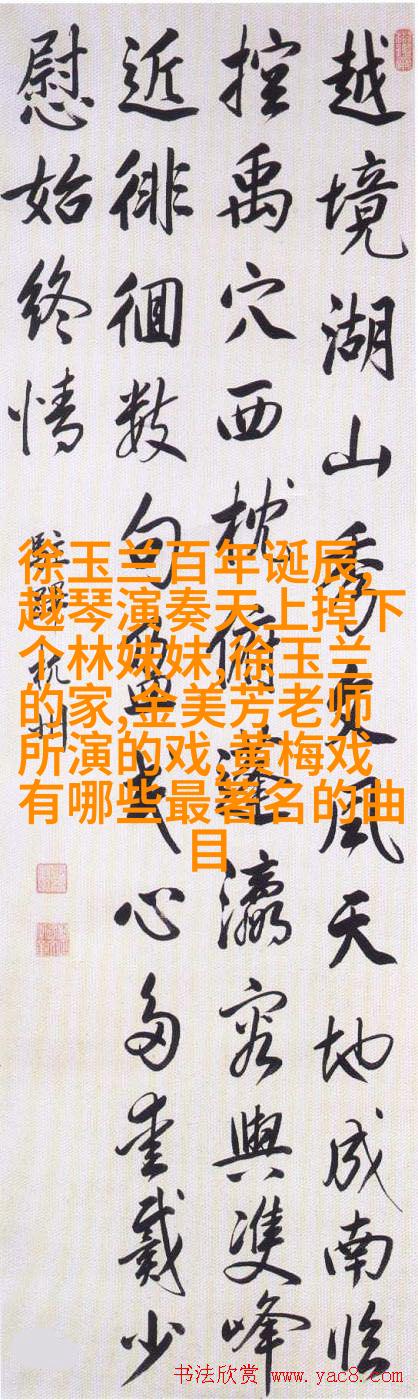 越境湖山秀文風天地成南臨
控禹穴西枕俯蓬瀛容與雙峰
近徘徊數句盈幾心多愛戴少
慰始終情
駐蹕杭州
徐玉兰百年诞辰,
越琴演奏天上掉下
个林妹妹,徐玉兰
的家,金美芳老师
所演的戏,黄梅戏
有哪些最著名的曲
目
书法欣赏 www.yac8.com